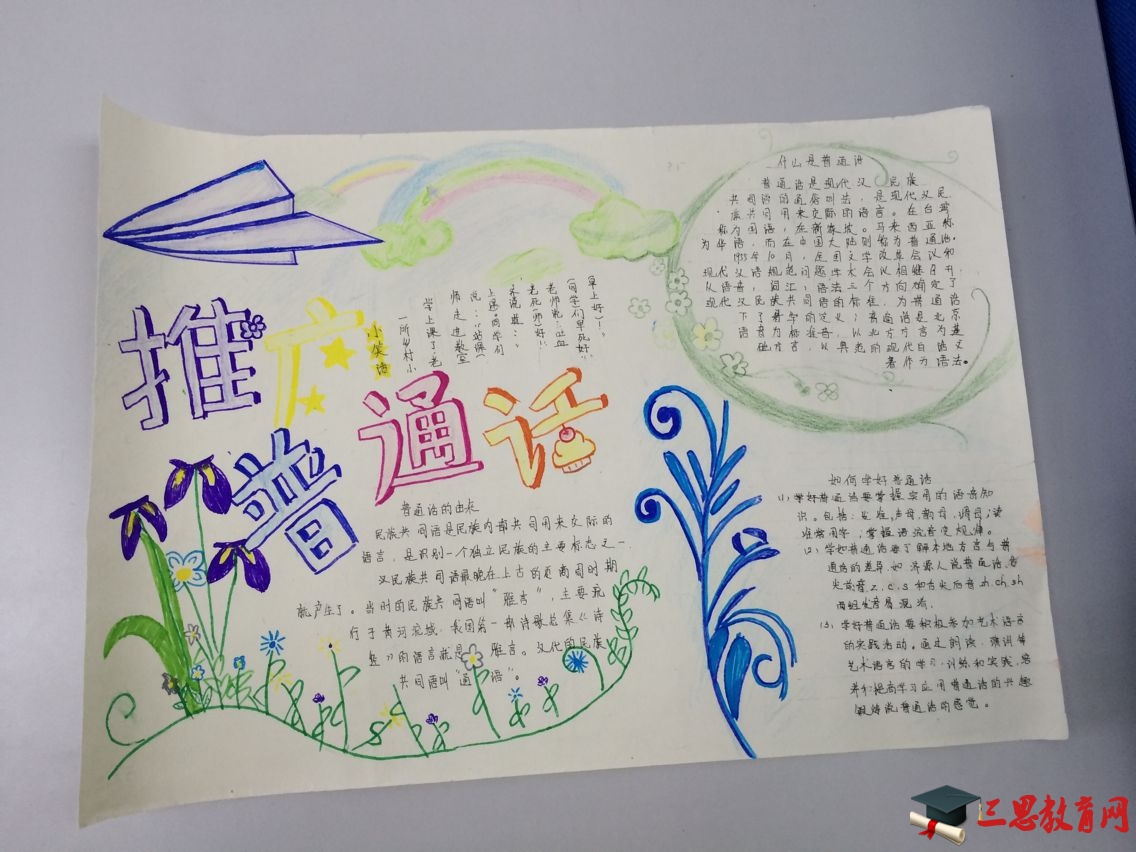 推广
普通话
小笑话
一所乡村小
学上课了老
师走进教室
说：
上课。同学们
老师说：
早上好!
什么是普通话
普通话是现代汉 民族
共同语的通俗叫法，是现代汉民
族共同用来交际的语言。在台湾
称为国语，在新加坡。马来西亚称
为华语，而在中国大陆则称为普通话。
1955年10月，全国文字改革会议和
现代汉语规范问题学术会议相继召开，
从语音，词汇，语法三个方向确定了
现代汉民族共同语的标准，为普通话
下了科学的定义；普通话是北京
语音为标准音，以北方方言为基
础方言，以典范的现代白话文
著作为语法。
普通话的由来
民族共同语是民族内部共同用来交际的
语言，是识别一个独立民族的主要标志之一
汉民族共同语最晚在上古的夏商周时期
就产生了。当时的民族共同语叫“雅言”，主要流
行于黄河流域，我国第一部诗歌总集《诗
经》的语言就是 雅言。汉代的民族
共同语叫“通 语”。
如何学好普通话
(1)、学好普通话要掌握实用的语音知
识。包括：发准，声母，韵母，调号；读
准常用字，掌握语流音变规律。
(2)、学好普通话要了解本地方言与普
通话的差异。如 济源人说普通话，舌
尖前音z,c,s和舌尖后音zh,ch,sh
两组发音易混淆，
(3)、学好普通话要积极参加艺术语言
的实践活动。通过朗读，演讲等
艺术语言的学习，训练和实践，培
养们提高学习应用普通话的兴趣
锻炼说普通话的感觉。
三思教育网